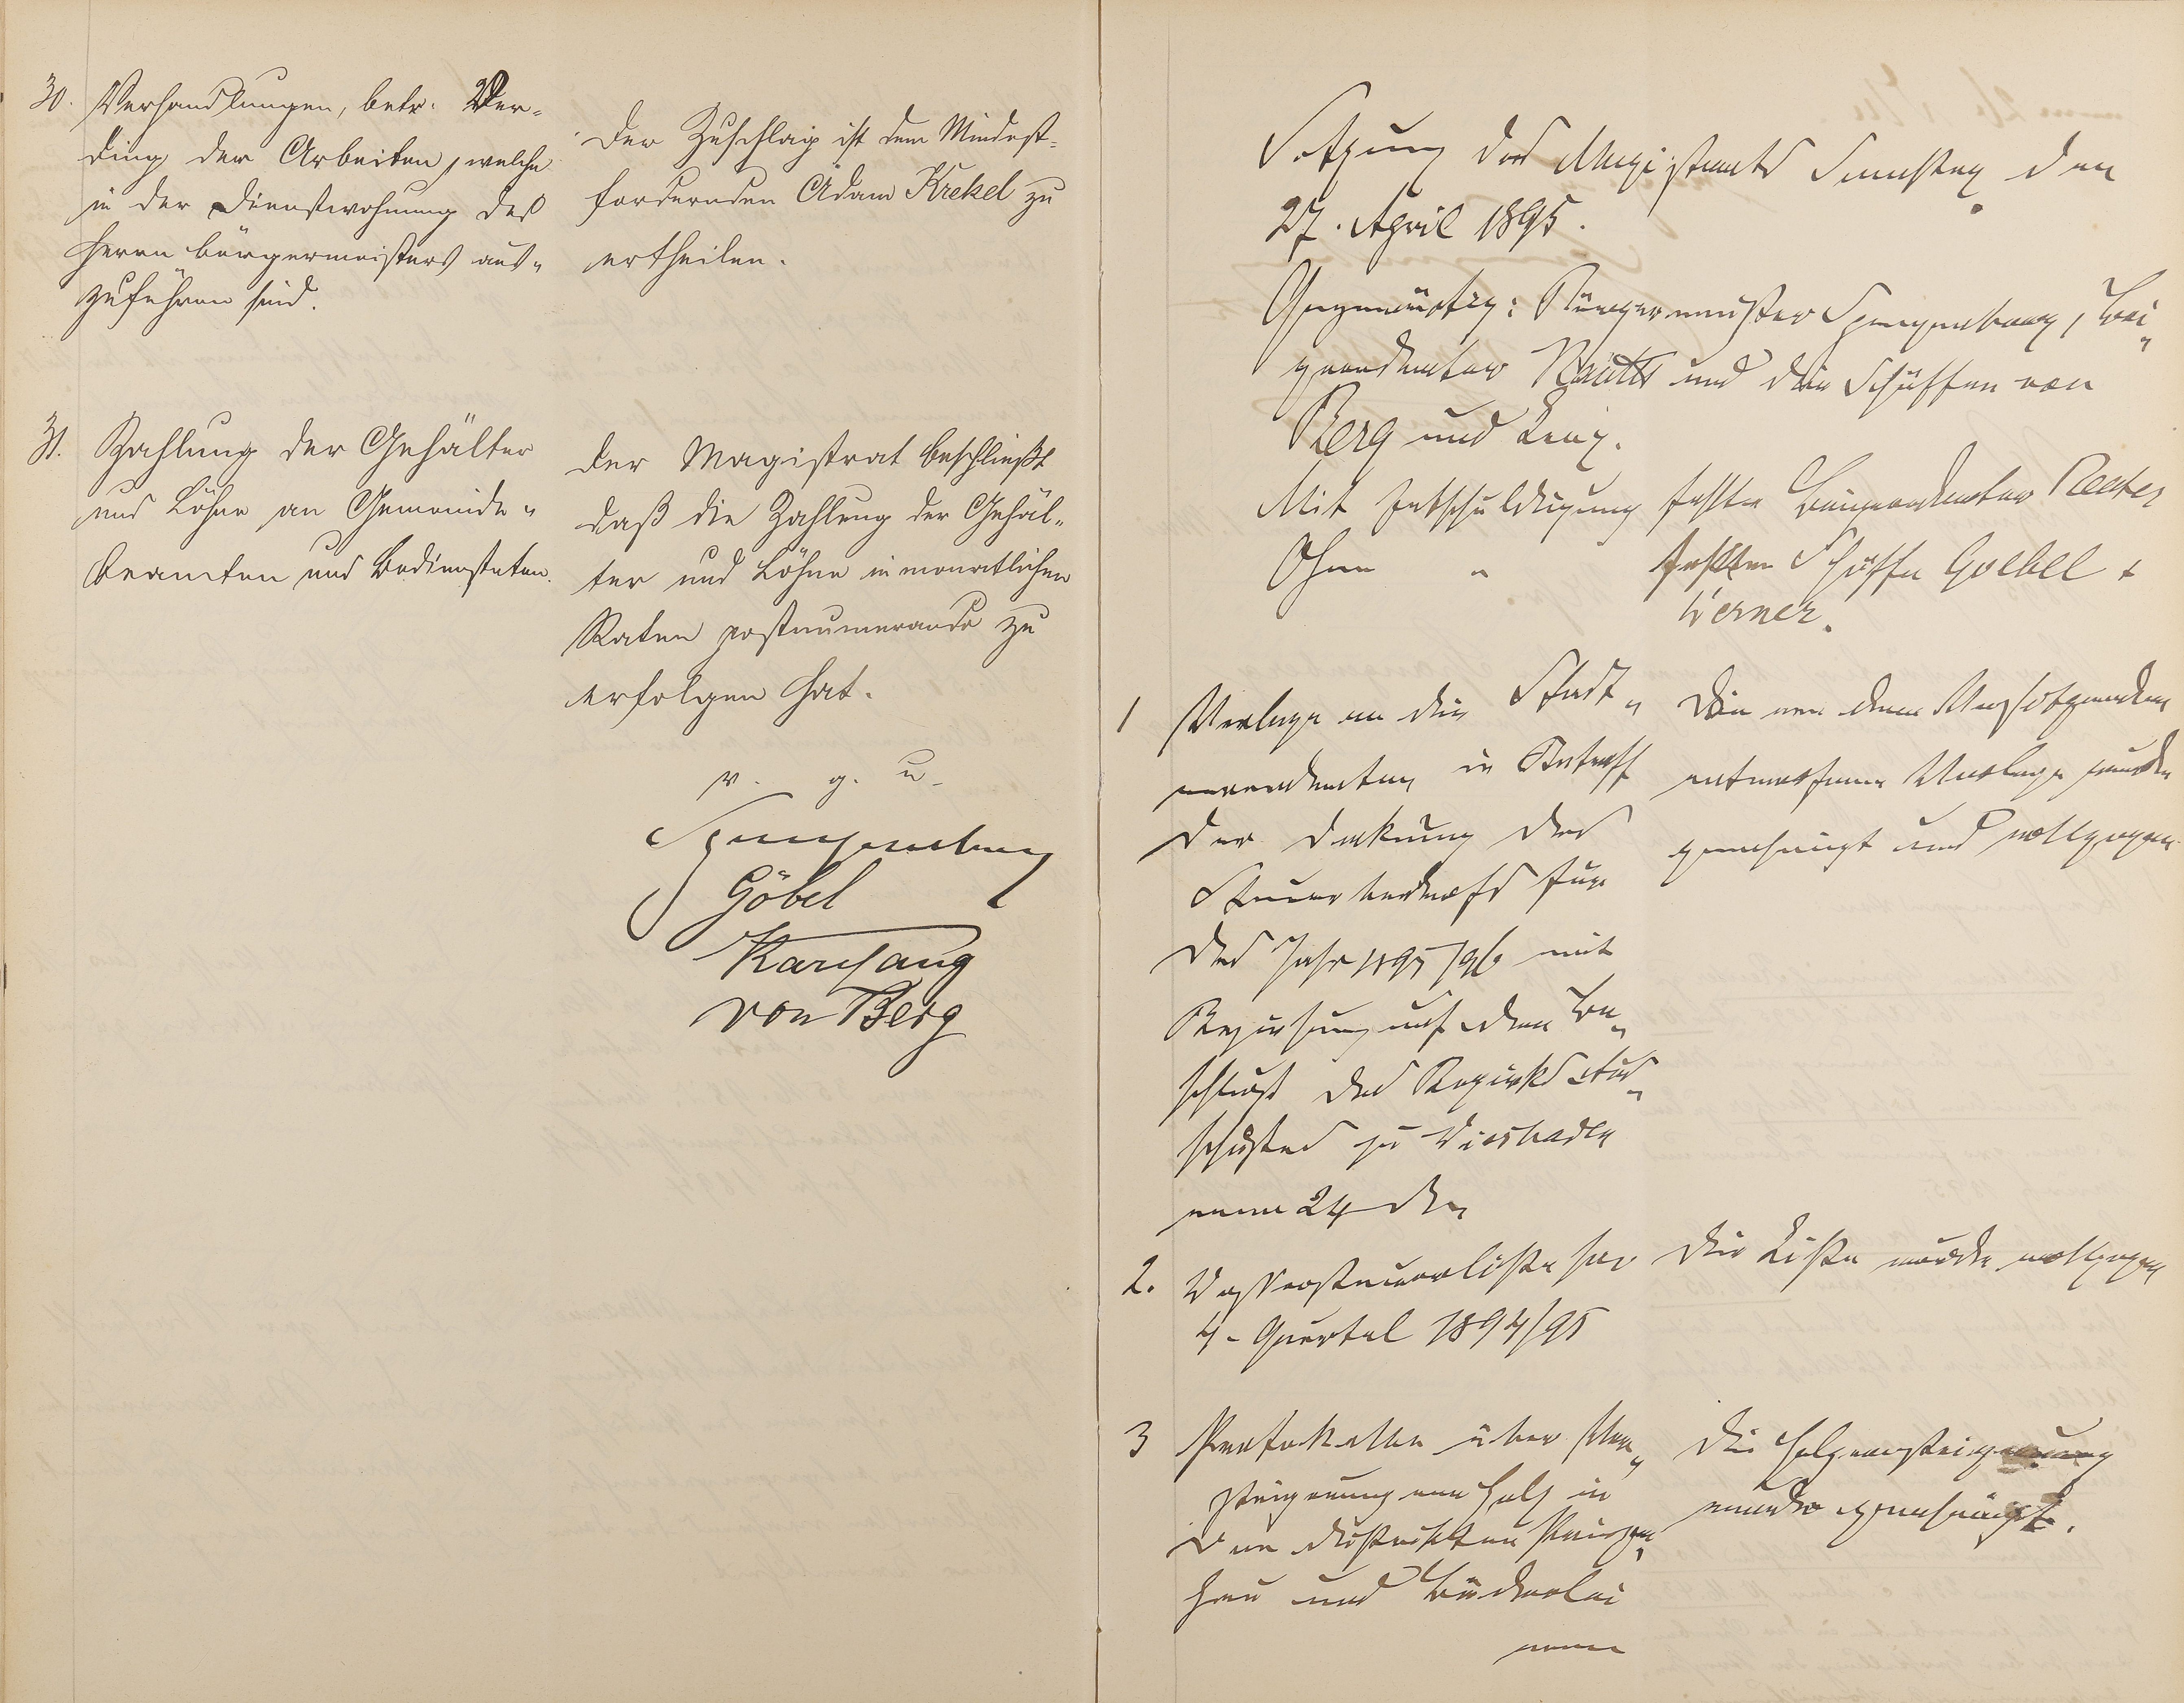 30. Verhandlungen, betr. Ver-
ding der Arbeiten, welche
in der Dienstwohnung des
Herrn Bürgermeisters aus-
zuführen sind.
Der Zuschlag ist dem Mindest-
fordernden Adam Krekel zu
ertheilen.
31. Zahlung der Gehälter
und Löhne an Gemeinde-
beamten und Bediensteten.
Der Magistrat beschließt
daß die Zahlung der Gehäl-
ter und Löhne in monatlichen
Raten postnumerando zu
erfolgen hat.
v. g. u.
Spangenberg
Göbel
von Berg
Sitzung des Magistrats Samstag den
27. April 1895.
Gegenwärtig: Bürgermeister Spangenberg, Bei-
geordneter und die Schöffen von
Berg und
Mit Entschuldigung fehlte Beigeordneter
Ohne " fehlten Schöffe Goebel +
Werner.
1 Vorlage an die Stadt-
verordneten in Betreff
der Deckung des
Steuerbedarfs für
das Jahr 1895/96 mit
Beziehung auf den Be-
schluß des Bezirks Aus-
schusses zu Wiesbaden
vom 24 den
Die von dem Vorsitzenden
entworfene Vorlage wurde
genehmigt und vollzogen.
2. Wassersteuerliste per
4. Quartal 1894/95
Die Liste wurde vollzogen
3 Protokolle über Ver-
steigerung von Holz in
den Distrikten
und
vom
Die Holzversteigerung
wurde genehmigt.